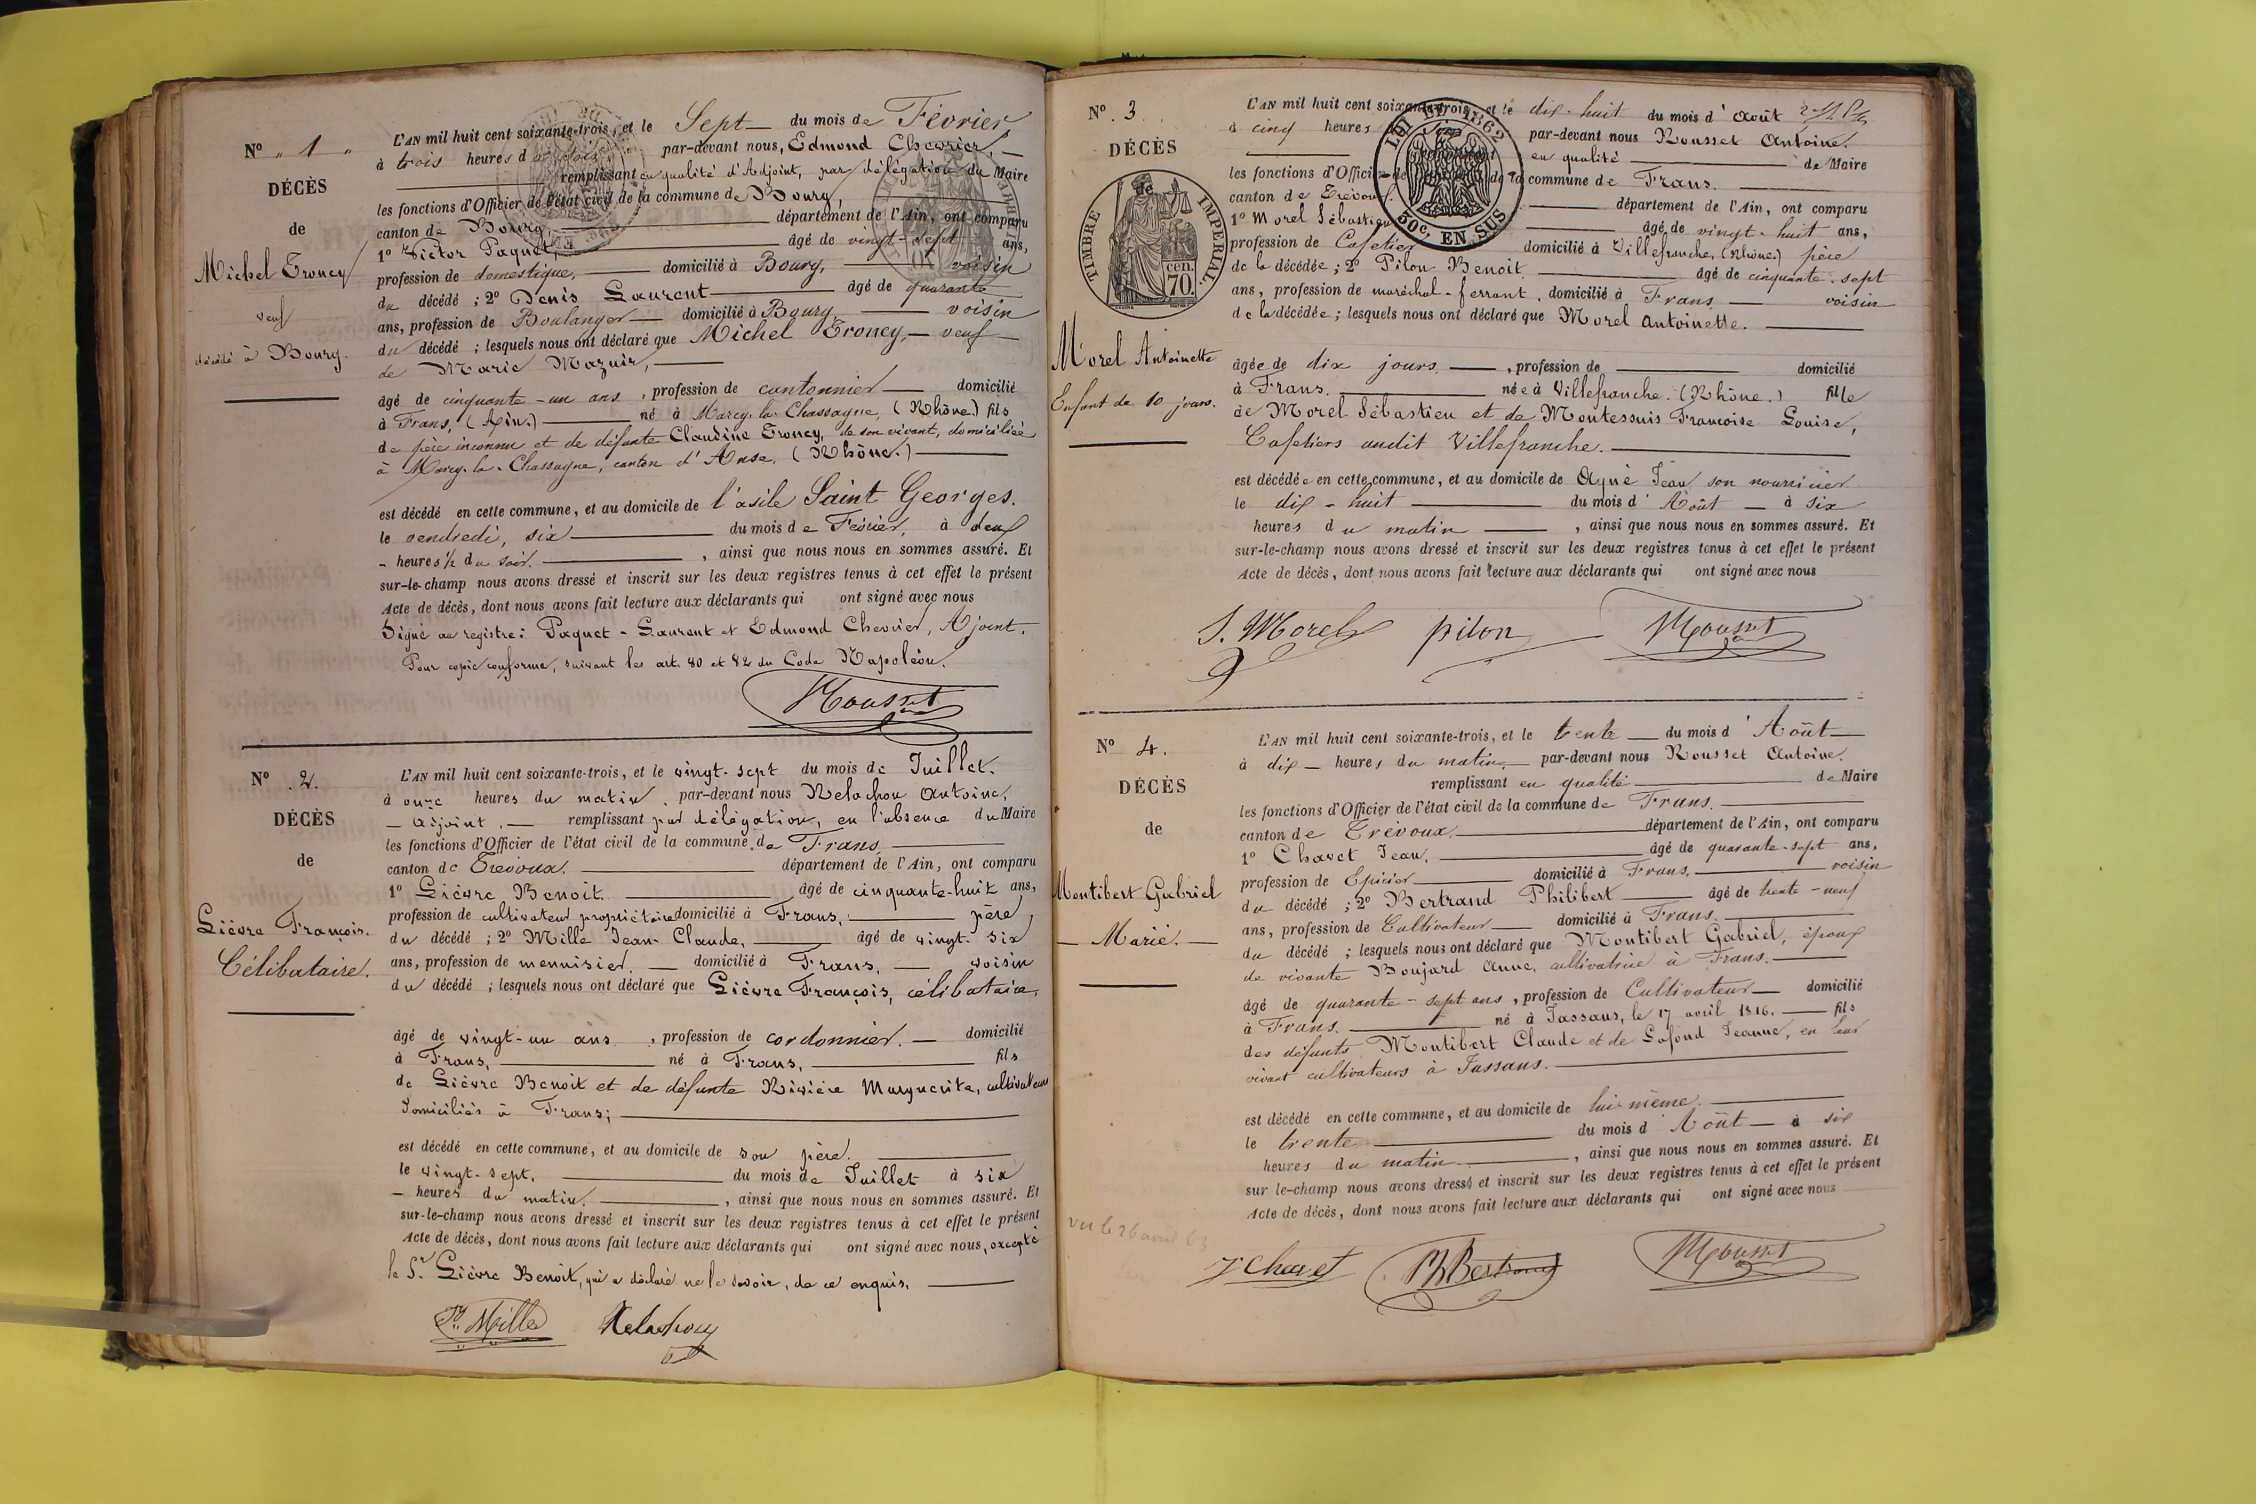 N° " 1 "
DÉCÈS
de
Michel Troncy
veuf
décédé à Bourg.
L'AN mil huit cent soixante-trois, et le Sept du mois de Février,
à trois heures du soir par-devant nous, Edmond Chevrier,
remplissant en qualité d'Adjoint, par délégation du Maire
les fonctions d'Officier de l'état civil de la commune de Bourg,
canton de Bourg, département de l'Ain, ont comparu
1° Victor Paquet, âgé de vingt-sept ans,
profession de domestique, domicilié à Bourg, voisin
du décédé ; 2° Denis Laurent âgé de quarante
ans, profession de Boulanger domicilié à Bourg voisin
du décédé ; lesquels nous ont déclaré que Michel Troncy, veuf
de Marie Mazuir,
âgé de cinquante-un ans, profession de cantonnier domicilié
à Frans, (Ain.) né à Marcy-la-Chassagne, (Rhône.) fils
de père inconnu et de défunte Claudine Troncy, de son vivant, domiciliée
à Marcy-la-Chassagne, canton d'Anse, (Rhône.)
est décédé en cette commune, et au domicile de l'asile Saint Georges.
le vendredi, six du mois de Février, à deux
- heures ½ du soir. , ainsi que nous nous en sommes assuré. Et
sur-le-champ nous avons dressé et inscrit sur les deux registres tenus à cet effet le présent
Acte de décès, dont nous avons fait lecture aux déclarants qui ont signé avec nous
Signé au registre : Paquet - Laurent et Edmond Chevrier, Ajoint.
Pour copie conforme, suivant les art. 80 et 82 du Code Napoléon.
Rousset
N° 2.
DÉCÈS
de
Lièvre François.
Célibataire.
L'AN mil huit cent soixante-trois, et le vingt-sept du mois de Juillet.
à onze heures du matin, par-devant nous Relachon Antoine,
- Adjoint, - remplissant par délégation, en l'absence du Maire
les fonctions d'Officier de l'état civil de la commune de Frans,
canton de Trévoux. département de l'Ain, ont comparu
1° Lièvre Benoit âgé de cinquante-huit ans,
profession de cultivateur propriétaire domicilié à Frans, père
du décédé ; 2° Mille Jean-Claude, âgé de vingt-six
ans, profession de menuisier. domicilié à Frans, voisin
du décédé ; lesquels nous ont déclaré que Lièvre François, célibataire,
âgé de vingt-un ans , profession de cordonnier. domicilié
à Frans, né à Frans, fils
de Lièvre Benoit et de défunte Rivière Marguerite, cultivateurs
domiciliés à Frans;
est décédé en cette commune, et au domicile de son père.
le vingt-sept. du mois de Juillet à six
- heures du matin. , ainsi que nous nous en sommes assuré. Et
sur-le-champ nous avons dressé et inscrit sur les deux registres tenus à cet effet le présent
Acte de décès, dont nous avons fait lecture aux déclarants qui ont signé avec nous, excepté
le Sr Lièvre Benoit, qui a déclaré ne le savoir, de ce enquis.
Mille Relachon
N° 3
DÉCÈS
TIMBRE IMPÉRIAL
cen. 70.
Morel Antoinette
Enfant de 10 jours.
LOI DE 1862
50c. EN SUS
L'AN mil huit cent soixante-trois, et le dix-huit du mois d'Août
à cinq heures soir par-devant nous Rousset Antoine.
remplissant en qualité de Maire
les fonctions d'Officier de de la commune de Frans.
canton de Trévoux. département de l'Ain, ont comparu
1° Morel Sébastien âgé de vingt-huit ans,
profession de Cafetier domicilié à Villefranche, (Rhône.) père
de la décédée ; 2° Pilon Benoit âgé de cinquante-sept
ans, profession de maréchal-ferrant. domicilié à Frans voisin
de la décédée ; lesquels nous ont déclaré que Morel Antoinette.
âgée de dix jours , profession de domicilié
à Frans. née à Villefranche. (Rhône.) fille
de Morel Sébastien et de Montessuis Françoise Louise,
Cafetiers audit Villefranche.
est décédée en cette commune, et au domicile de Ayné Jean son nourricier
le dix-huit du mois d'Août à six
heures du matin , ainsi que nous nous en sommes assuré. Et
sur-le-champ nous avons dressé et inscrit sur les deux registres tenus à cet effet le présent
Acte de décès, dont nous avons fait lecture aux déclarants qui ont signé avec nous
S. Morel pilon Rousset
N° 4.
DÉCÈS
de
Montibert Gabriel
- Marié. -
L'AN mil huit cent soixante-trois, et le trente du mois d'Août
à dix heures du matin, par-devant nous Rousset Antoine.
remplissant en qualité de Maire
les fonctions d'Officier de l'état civil de la commune de Frans.
canton de Trévoux département de l'Ain, ont comparu
1° Chavet Jean, âgé de quarante-sept ans,
profession de Epicier domicilié à Frans, voisin
du décédé ; 2° Bertrand Philibert âgé de trente-neuf
ans, profession de Cultivateur domicilié à Frans.
du décédé ; lesquels nous ont déclaré que Montibert Gabriel, époux
de vivante Boujard Anne, cultivatrice à Frans.
âgé de quarante-sept ans, profession de Cultivateur domicilié
à Frans. né à Jassans, le 17 avril 1816. fils
des défunts Montibert Claude et de Lafond Jeanne, en leur
vivant cultivateurs à Jassans.
est décédé en cette commune, et au domicile de lui-même.
le trente du mois d'Août à six
heures du matin , ainsi que nous nous en sommes assuré. Et
sur le-champ nous avons dressé et inscrit sur les deux registres tenus à cet effet le présent
Acte de décès, dont nous avons fait lecture aux déclarants qui ont signé avec nous
J Chavet Ph Bertrand Rousset